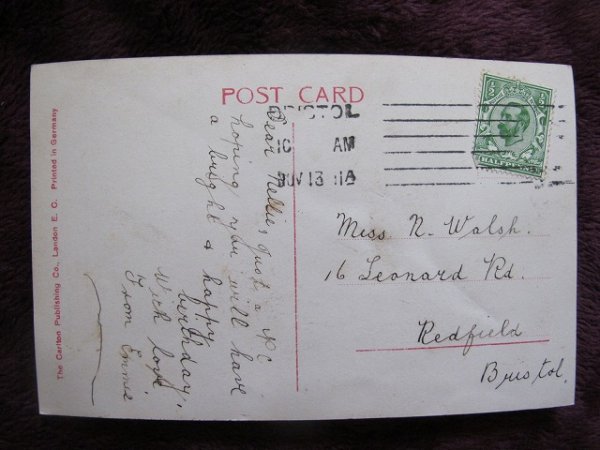 POST CARD
BRISTOL
10 AM
NOV 13 11
HALFPENNY
Dear Nellie, Just a P.C
hoping you will have
a bright & happy
birthday,
With love
From Emma
Miss N. Walsh.
16 Leonard Rd.
Redfield
Bristol.
The Carlton Publishing Co., London E. C. Printed in Germany